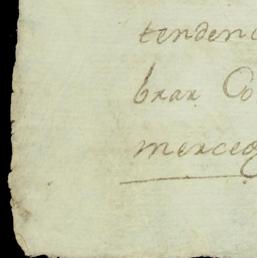 tendenc
brar Co
merced